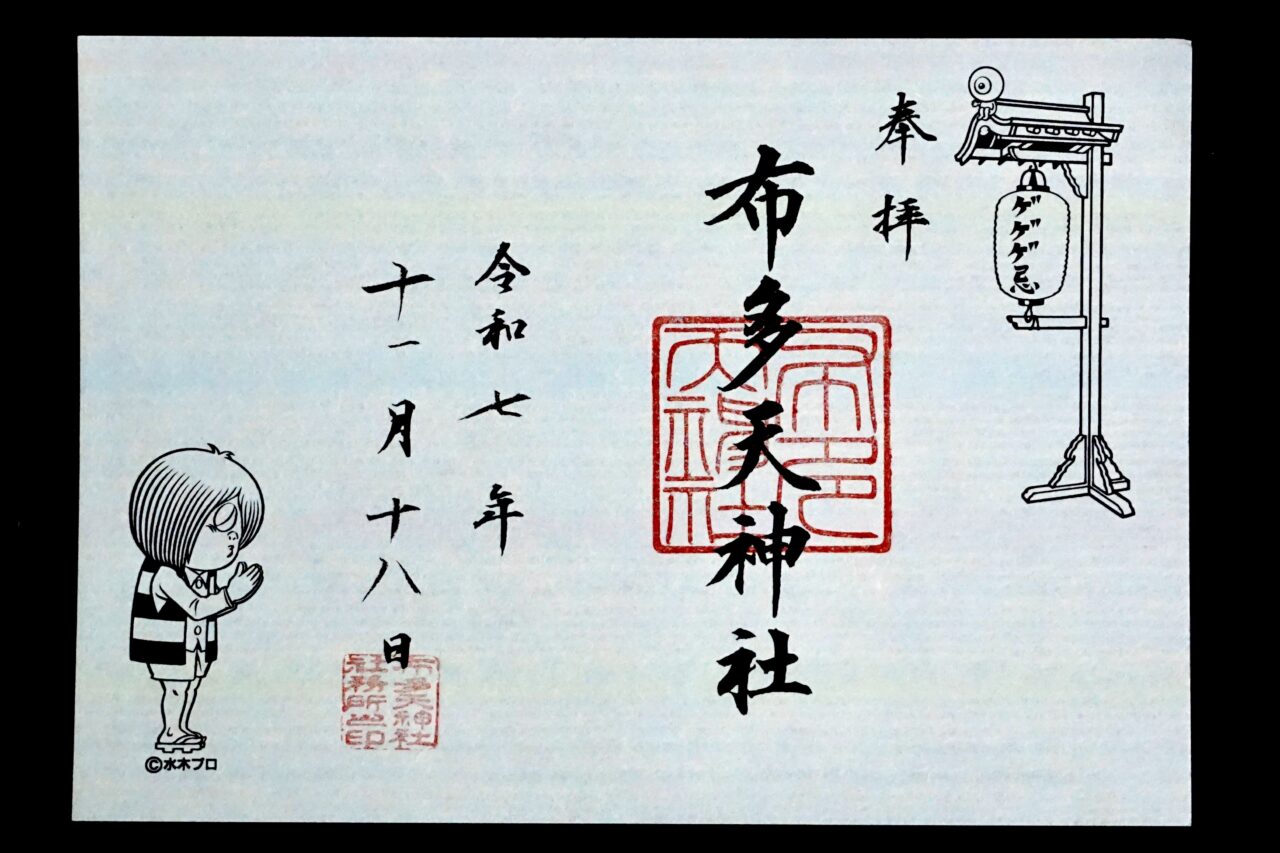 ゲゲゲ忌
奉拝
布多天神社
令和七年
十一月十八日
布多天神
社務所之印
©水木プロ